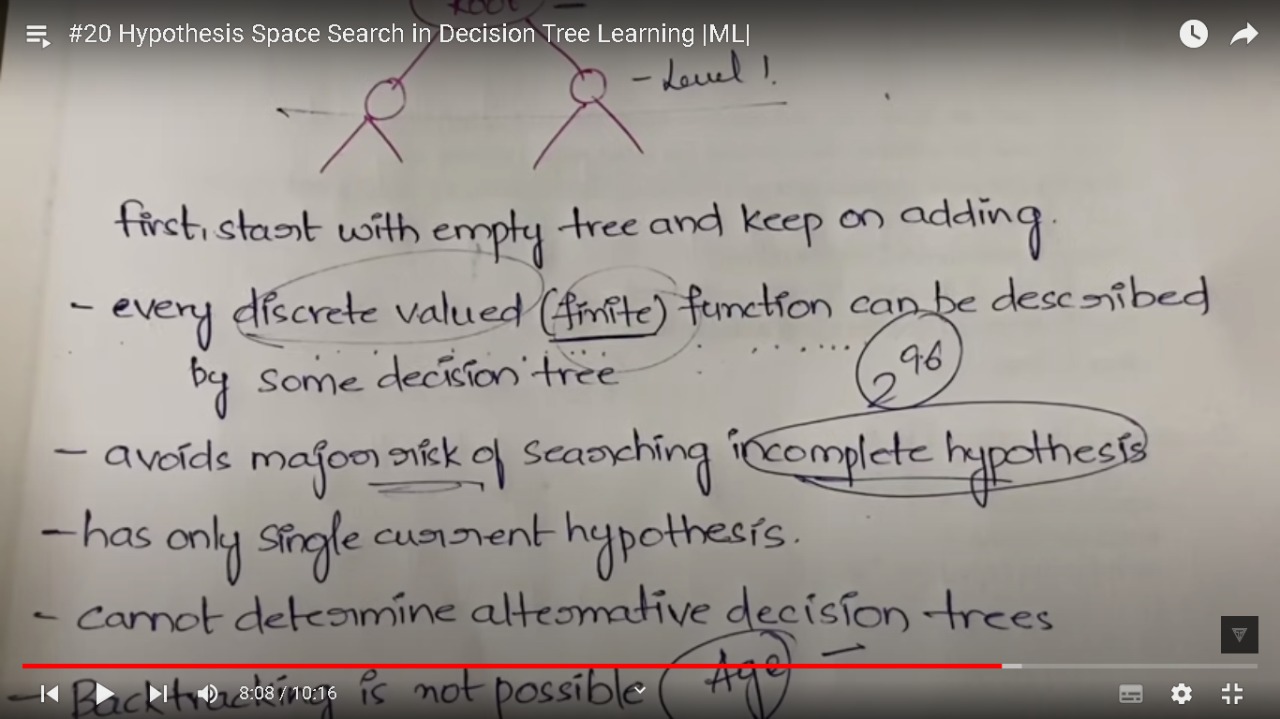 Root
#20 Hypothesis Space Search in Decision Tree Learning |ML|
- Level 1.
first, start with empty tree and keep on adding.
- every discrete valued (finite) function can be described
by some decision tree
2^96
- avoids major risk of searching incomplete hypothesis
- has only single current hypothesis.
- cannot determine alternative decision trees
- Backtracking is not possible
Age
8:08 / 10:16